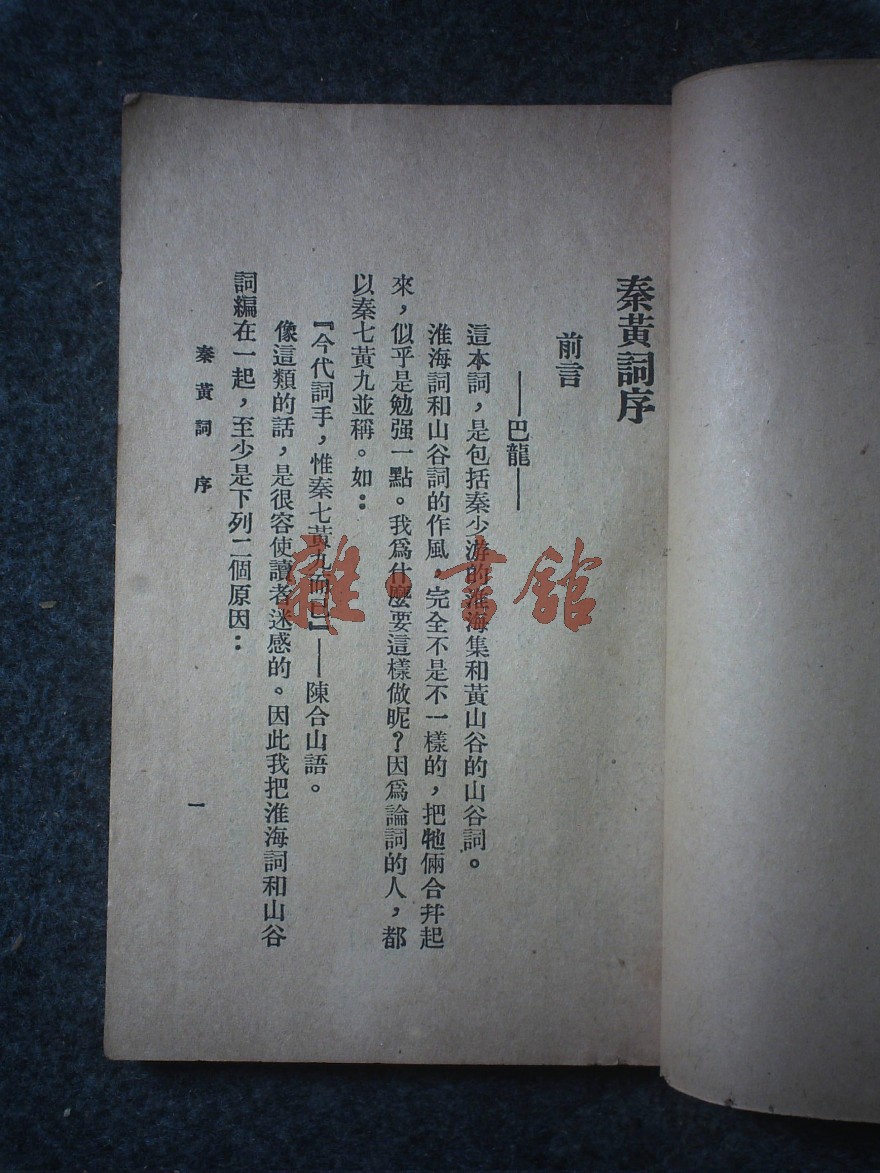 秦黃詞序
前言
——巴龍——
這本詞，是包括秦少游的淮海集和黃山谷的山谷詞。
淮海詞和山谷詞的作風，完全不是不一樣的，把牠倆合幷起
來，似乎是勉强一點。我爲什麼要這樣做昵？因爲論詞的人，都
以秦七黃九並稱。如：
『今代詞手，惟秦七黃九而已』——陳合山語。
像這類的話，是很容使讀者迷感的。因此我把淮海詞和山谷
詞編在一起，至少是下列二個原因：
秦黃詞 序
一
雜·書館